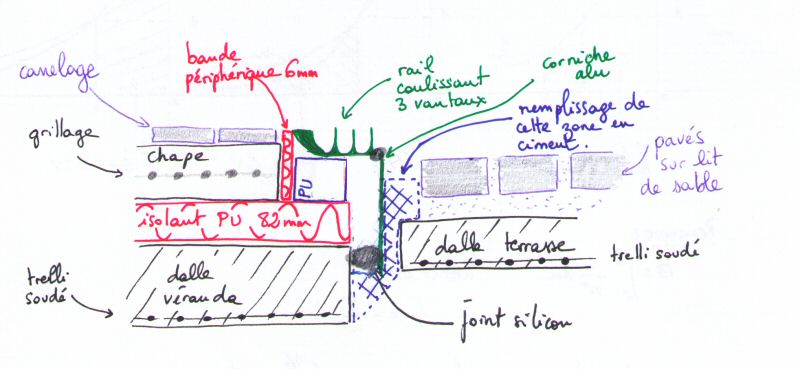 canelage
bande
périphérique 6mm
rail
coulissant
3 vantaux
corniche
alu
remplissage de
cette zone en
ciment.
pavés
sur lit
de sable
grillage
chape
PU
isolant PU 82mm
trelli
soudé
dalle
véranda
dalle terrasse
trelli soudé
joint silicon